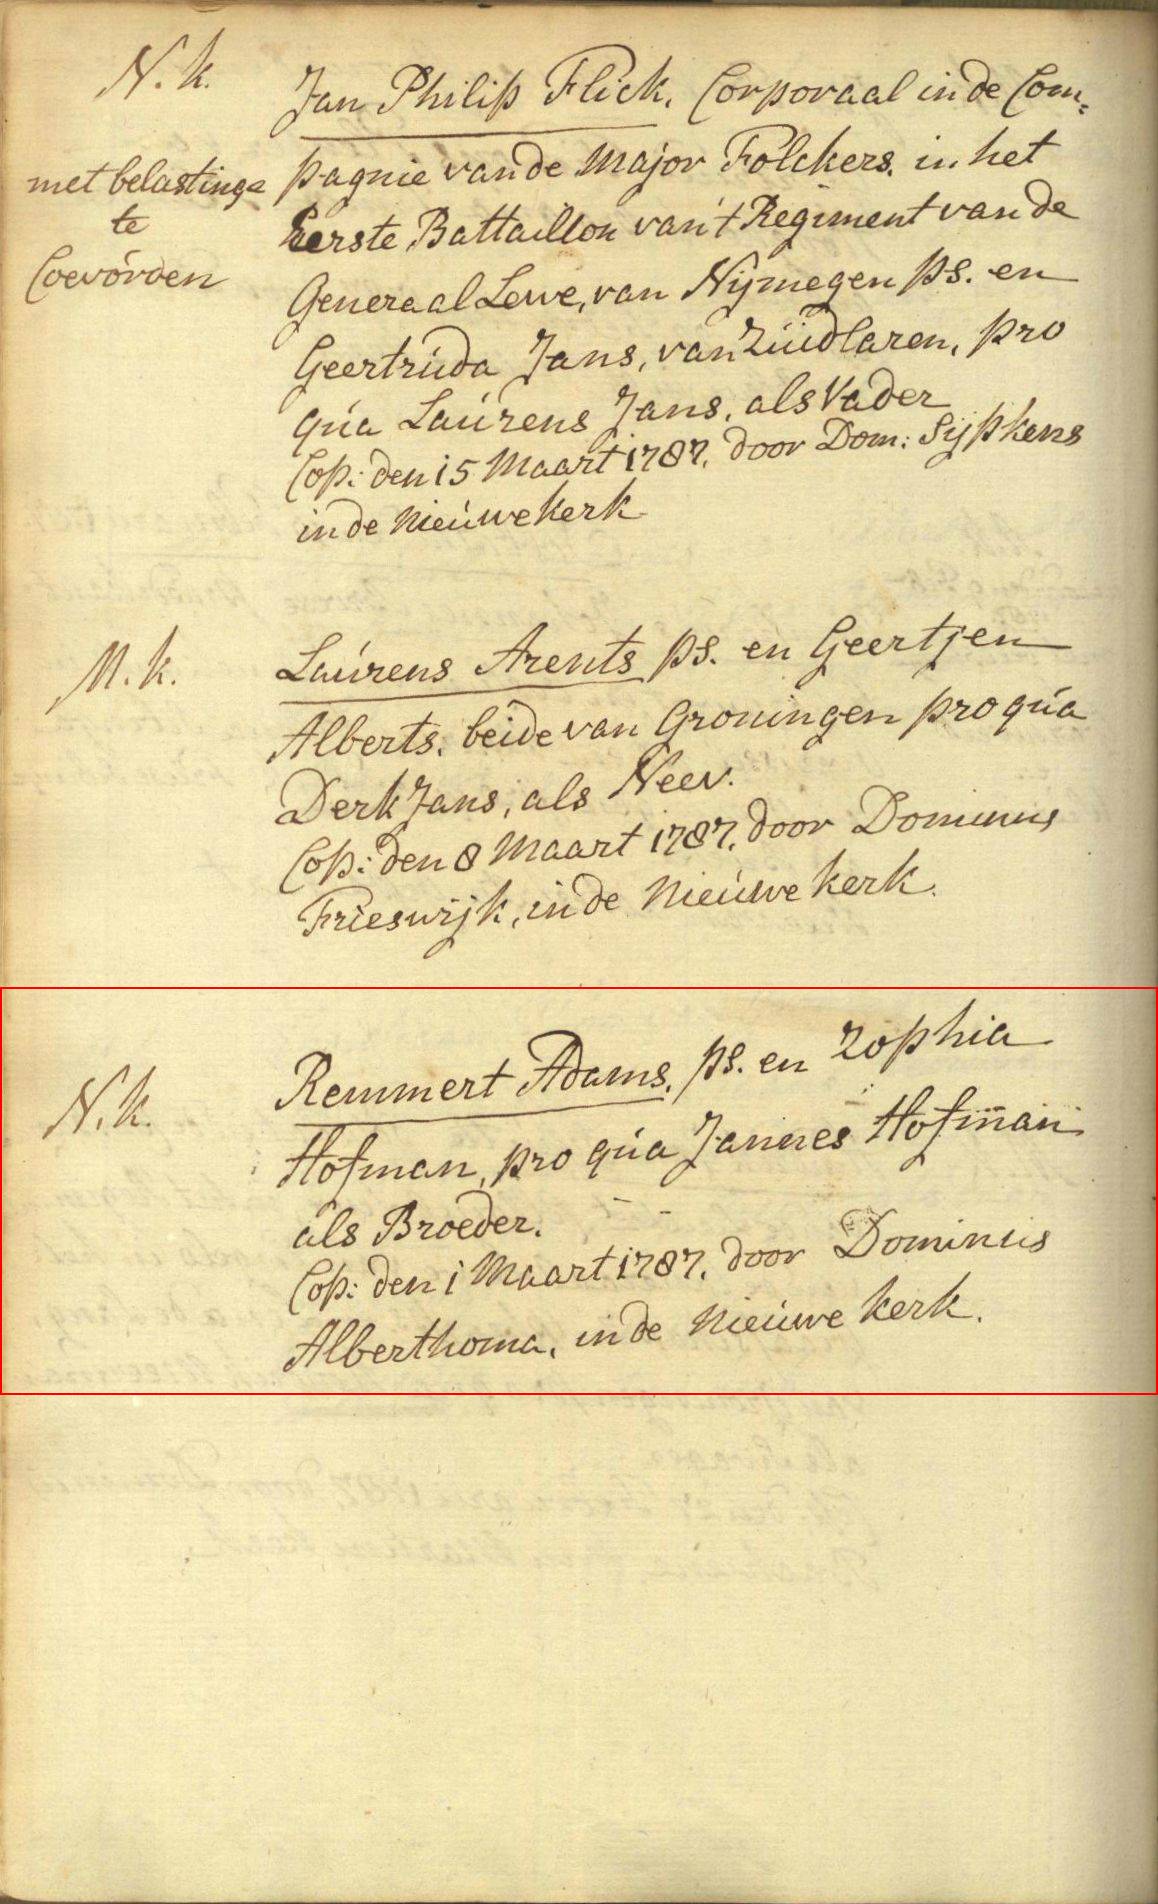 N. k.
Jan Philip Flick, Corporaal in de Com=
met belastinge
te
Coevorden
pagnie van de Major Folckers, in het
Eerste Battaillon van't Regiment van de
Generaal Lewe, van Nijmegen ps. en
Geertruda Jans, van Zuidlaren, pro
qua Laurens Jans, als Vader
Cop: den 15 Maart 1787, door Dom: Sijpkens
in de Nieuwe Kerk
M. k.
Laurens Arents ps. en Geertjen
Alberts, beide van Groningen pro qua
Derk Jans, als Neev.
Cop: den 8 Maart 1787, door Dominus
Frieswijk, in de Nieuwe kerk.
N. k.
Remmert Adams, ps. en Zophia
Hofman, pro qua Jannes Hofman
als Broeder.
Cop: den 1 Maart 1787, door Dominus
Alberthoma, in de Nieuwe kerk.